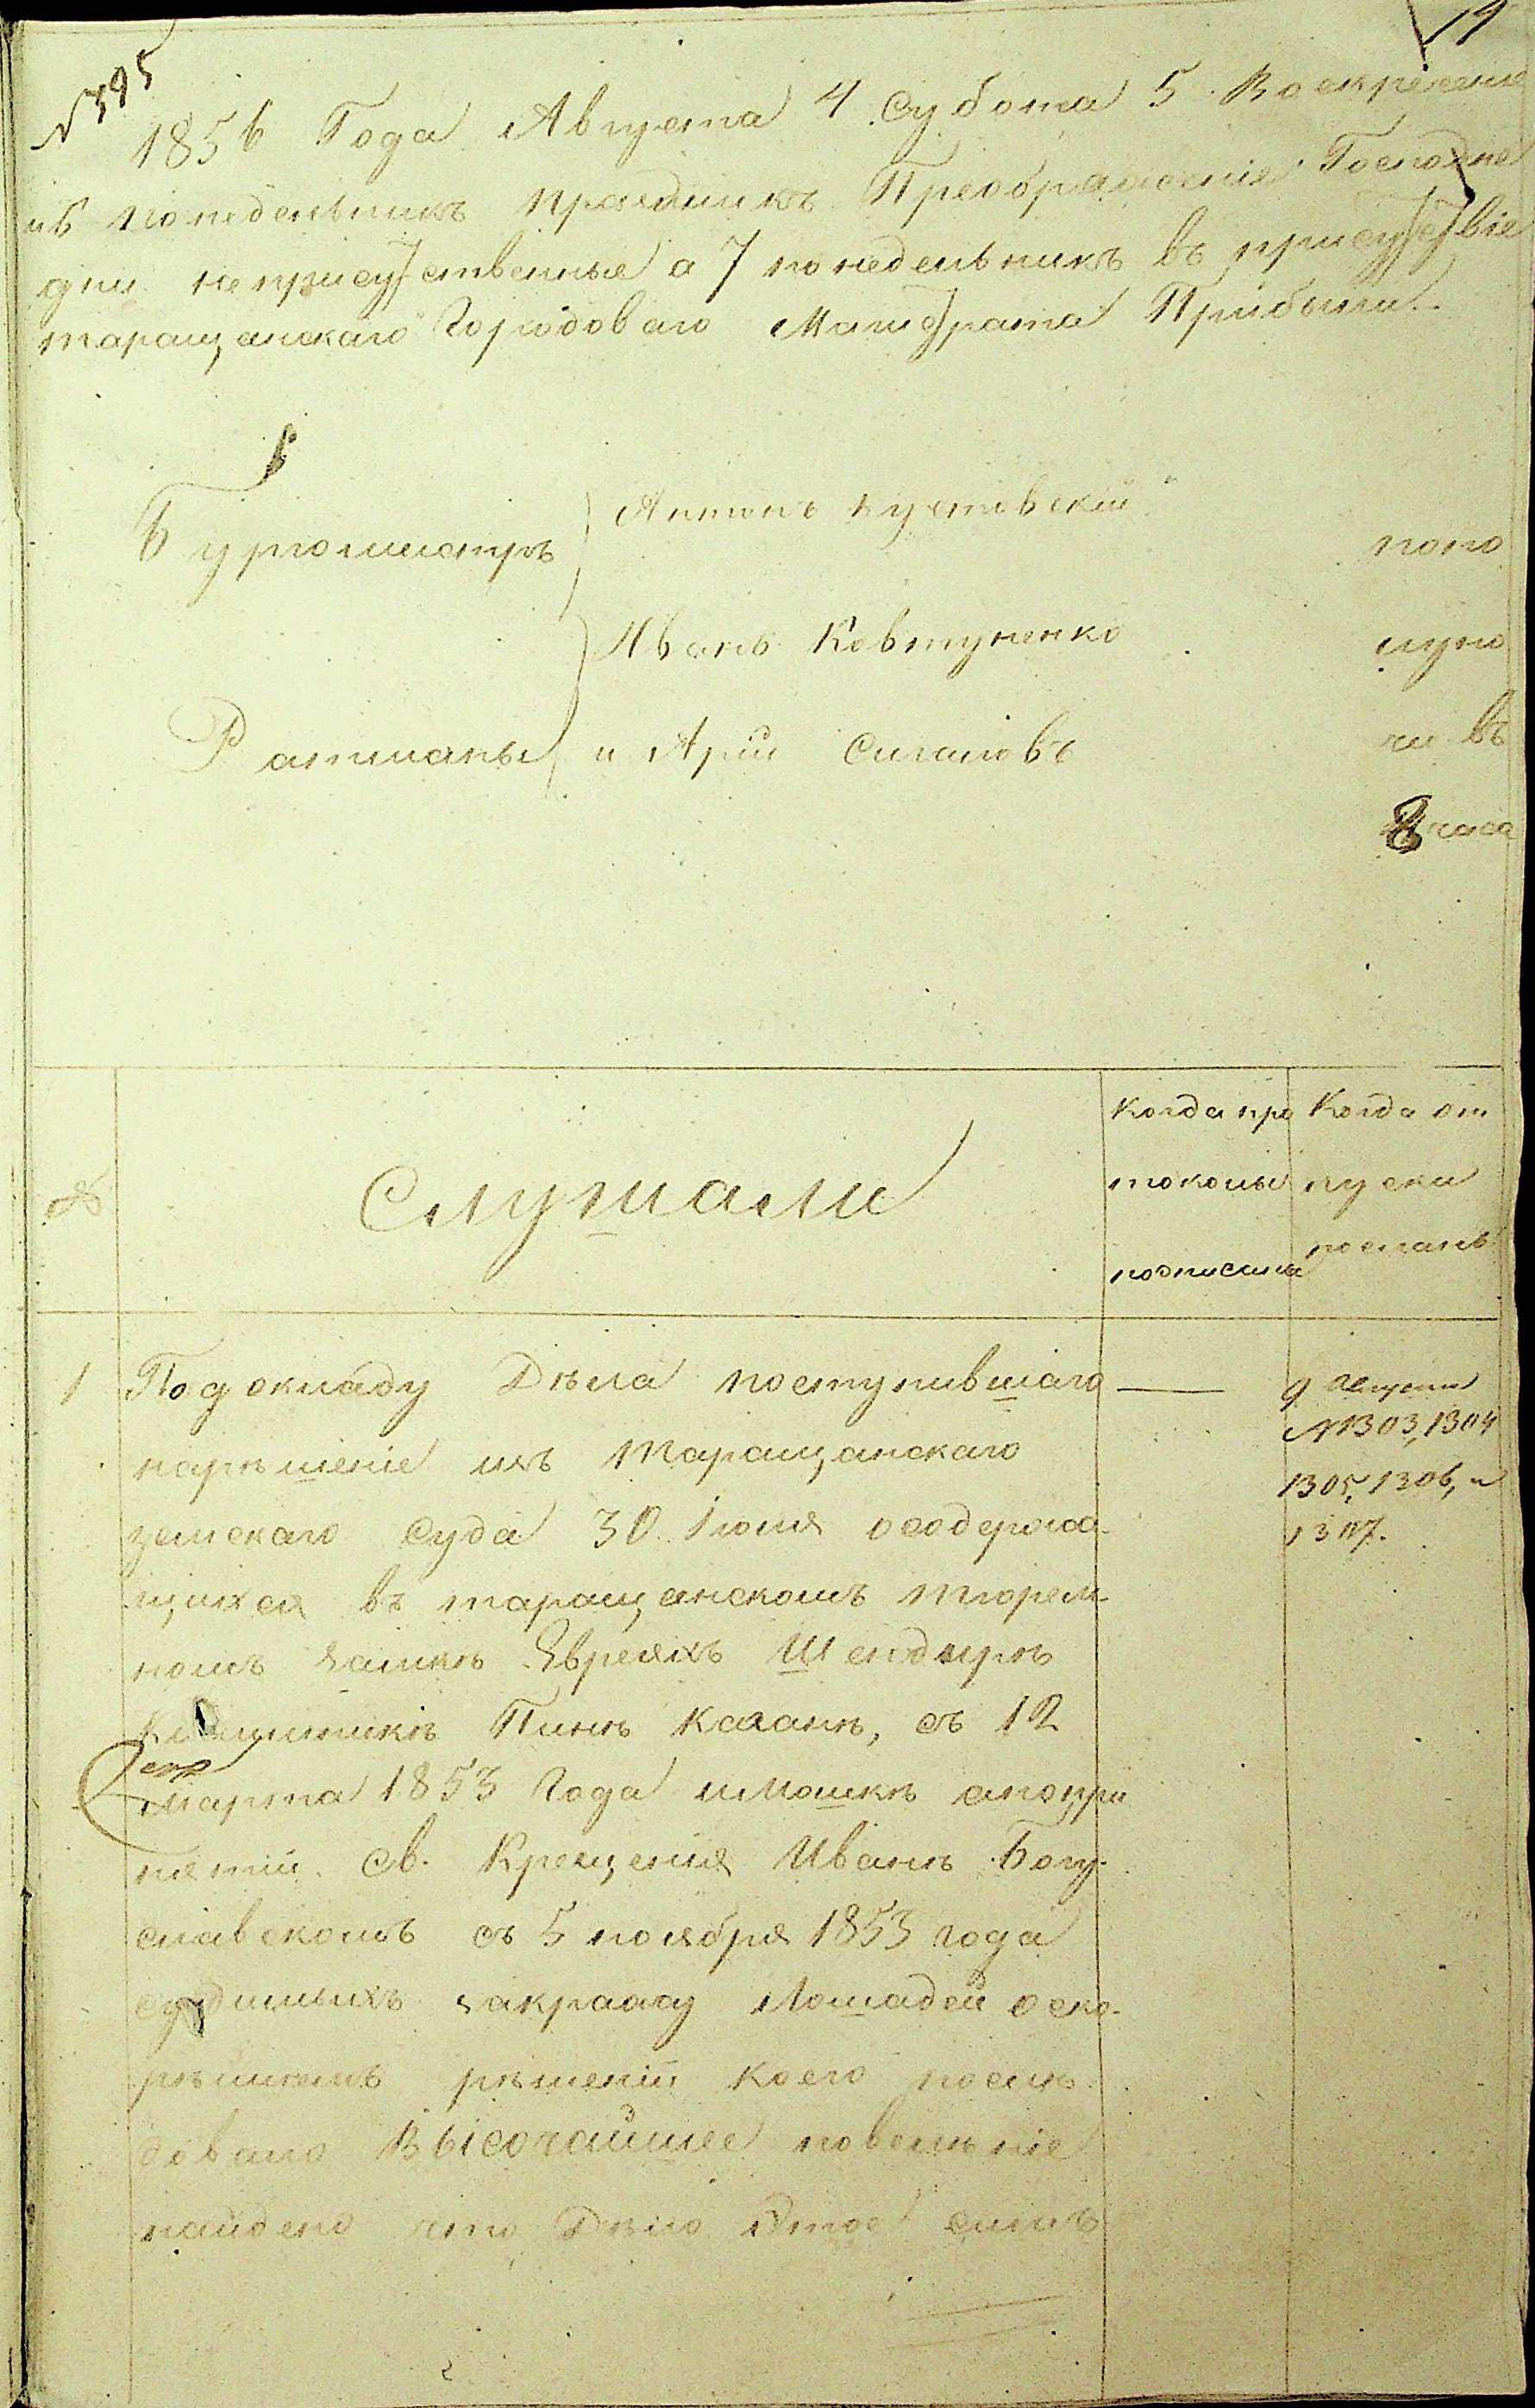 19
№ 395
1856 Года Августа 4 Субота 5 Воскресение
и 6 понедельникъ праздникъ Преображения Господне
дни неприсуственные а 7 понедельникъ въ присуствіе
таращанскаго Городоваго Магистрата Прибыли
Бургомистръ
Антонъ Кустовскій
Иванъ Ковтуненко
Ратманы
и Арій Сигаловъ
попо
луно
чи въ
8 часа
№
Слушали
Когда про
токолы
подписаны
Когда от
пуски
посланы
1
По докладу Дѣла поступившаго
нарѣшеніе изъ Таращанскаго
земскаго Суда 30 Іюля осодержа
щихся въ таращанскомъ тюрем
номъ замкѣ Евреяхъ Шендырѣ
Пинѣ Казанѣ, съ 12
Марта 1853 Года иМошкѣ апопри
нятіи Св. Крещенія Иванѣ Богу
славскомъ съ 5 ноября 1853 года
судимыхъ закражу Лошадей оско
рѣйшемъ рѣшеніи коего послѣ
довало Высочайшее повелѣніе
найдено что Дѣло Этое симъ
9 августа
№ 1303, 1304
1305, 1306, и
1307.